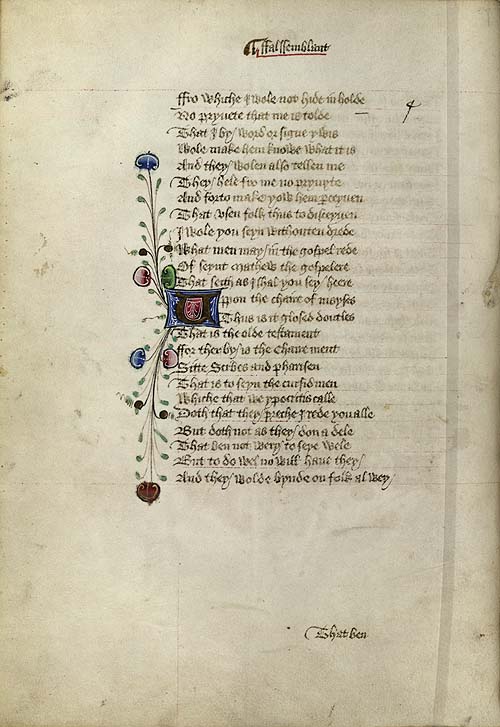 ffalssemblant
ffro whiche I wole not hide in holde
No pryuete that me is tolde
That I by word or signe ywis
Wole make hem knowe what it is
And they wolen also tellen me
They hele fro me no pryuyte
And forto make yow hem perceyuen
That vsen folk thus to disceyuen
I wole you seyn withouten drede
What men may in the gospel rede
Of seynt mathew the gospelere
That seith as I shal you sey heere
Vpon the chaire of moyses
Thus is it glosed doutles
That is the olde testament
ffor therby is the chaire ment
Sitte Scribes and pharisen
That is to seyn the cursid men
Whiche that we ypocritis calle
Doth that they preche I rede you alle
But doth not as they don a dele
That ben not wery to seye wele
But to do wel no will haue they
And they wolde bynde on folk alwey
That ben